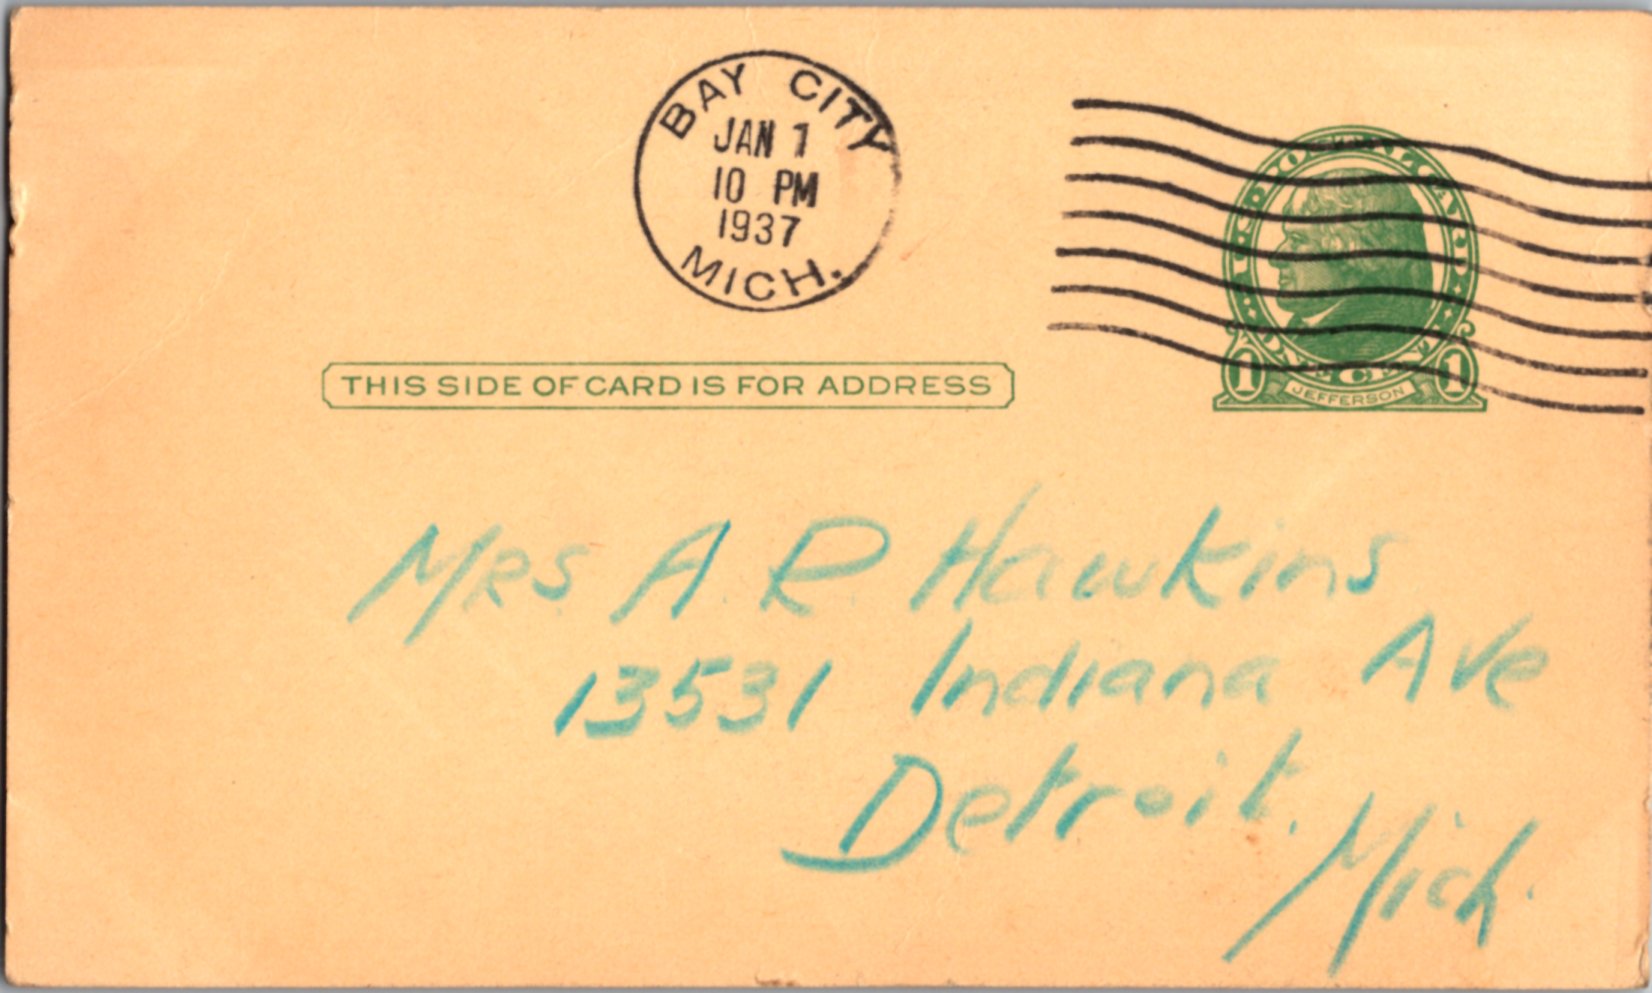 BAY CITY
JAN 1
10 PM
1937
MICH.
U.S. POSTAL CARD
ONE CENT
1 JEFFERSON 1
THIS SIDE OF CARD IS FOR ADDRESS
Mrs. A. R. Hawkins
13531 Indiana Ave
Detroit. Mich.